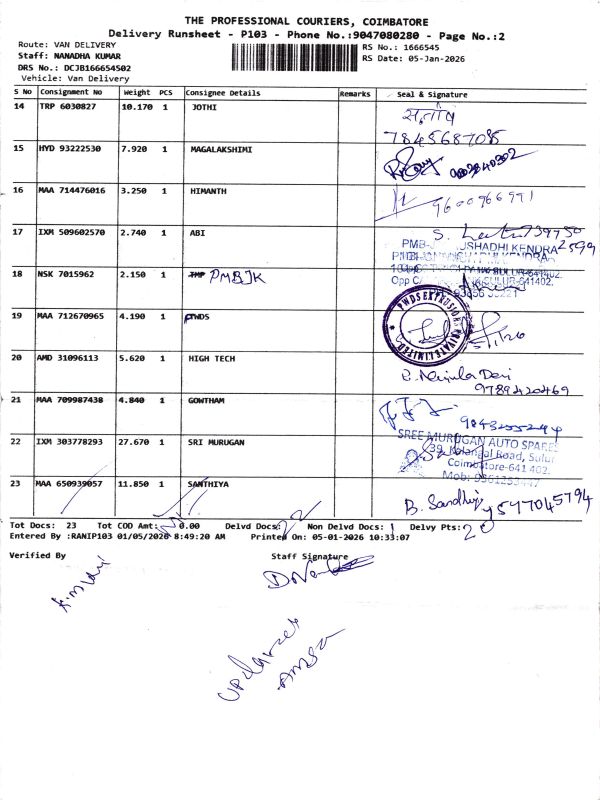 THE PROFESSIONAL COURIERS, COIMBATORE
Delivery Runsheet - P103 - Phone No.:9047080280 - Page No.:2
Route: VAN DELIVERY
RS No.: 1666545
Staff: NANADHA KUMAR
RS Date: 05-Jan-2026
DRS No.: DCJB166654502
Vehicle: Van Delivery
S No Consignment No Weight PCS Consignee Details Remarks Seal & Signature
14 TRP 6030827 10.170 1 JOTHI
7845687085
15 HYD 93222530 7.920 1 MAGALAKSHIMI
16 MAA 714476016 3.250 1 HIMANTH 9600966991
17 IXM 509602570 2.740 1 ABI
18 NSK 7015962 2.150 1 TMP PMBJK
19 MAA 712670965 4.190 1 PWDS
PWDS EXTRUSIONS PRIVATE LIMITED
20 AMD 31096113 5.620 1 HIGH TECH
9789420469
21 MAA 709987438 4.840 1 GOWTHAM
22 IXM 303778293 27.670 1 SRI MURUGAN
SREE MURUGAN AUTO SPARES
39, Kalangal Road, Sulur
Coimbatore-641 402.
23 MAA 650939057 11.850 1 SANTHIYA
B. Sandhiya
Tot Docs: 23 Tot COD Amt: 0.00 Delvd Docs: 22 Non Delvd Docs: 1 Delvy Pts: 20
Entered By :RANIP103 01/05/2026 8:49:20 AM Printed On: 05-01-2026 10:33:07
Verified By Staff Signature